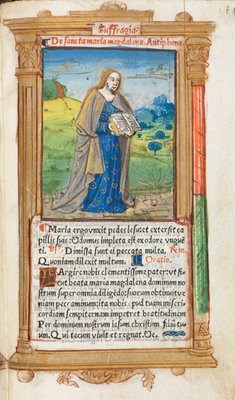 Suffragia
De sancta maria magdalena. Antiphona
Maria ergo vnxit pedes iesu et extersit ca
pillis suis: Domus impleta est ex odore vngue
ti. Dimissa sunt ei peccata multa.
Quoniam dilexit multum. Oratio.
Largire nobis clementissime pater: vt si
cut beata maria magdalena dominum no
strum super omnia diligẽdo: suorum obtinuit ve
niam peccaminum: ita nobis apud tuam miseri
cordiam sempiternam impetret beatitudinem
Per dominum nostrum iesum christum filiũ tuum
Qui tecum viuit et regnat. &c.